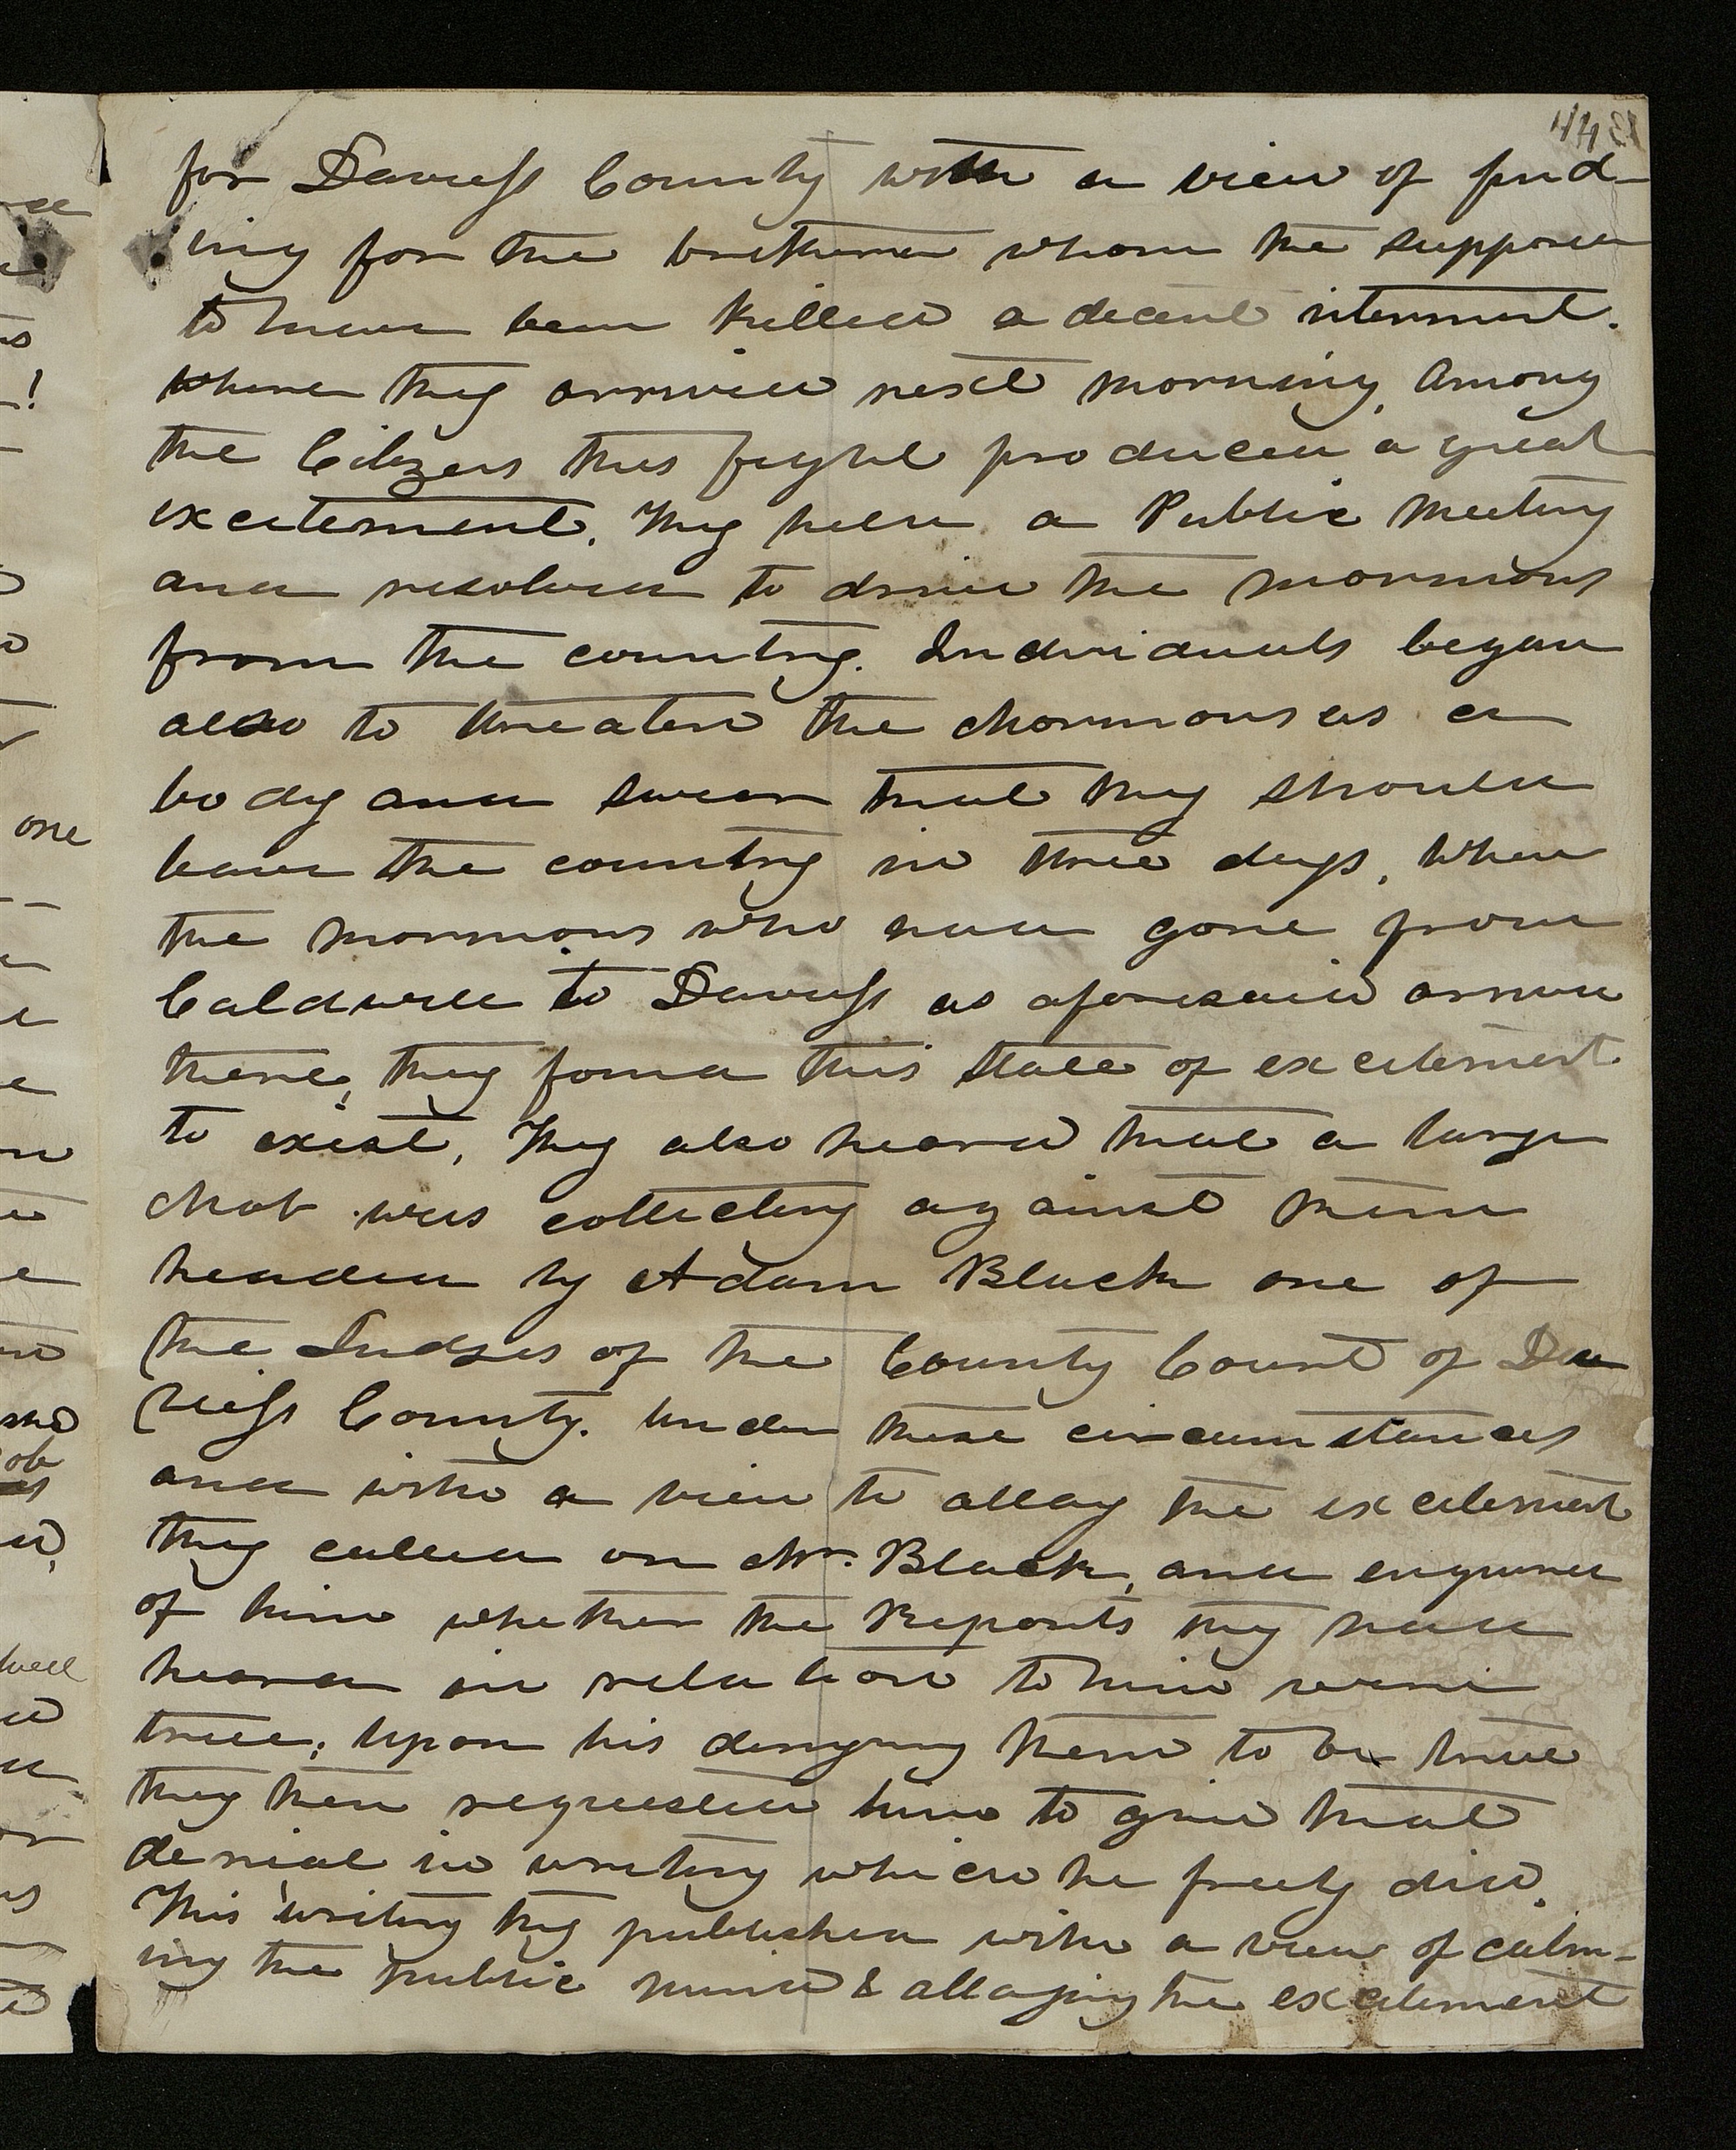 for Daviess County with a view of find-
ing for the bretheren whom the supposed
to have been killed a decent interment.
where they arrived next morning, Among
the Citizens this fight produced a great
excitement. They held a Public Meeting
and resolved to drive the mormons
from the country. Individuals began
also to threaten the Mormons as a
body and swear that they should
leave the country in three days. When
the mormons who had gone from
Caldwell to Daviess as aforesaid arrived
there, they found this state of excitement
to exist. They also heard that a large
Mob was collecting against them
headed by Adam Black one of
the Judges of the County Court of Da
viess County. Under these circumstances
and with a view to allay the excitement
they called on Mr. Black, and enquired
of him whether the Reports they had
heard in relation to him were
true; Upon his denying them to be true
they then requested him to give that
denial in writing which he freely did.
This writing they published with a view of calm-
ing the public mind & allaying the excitement
one